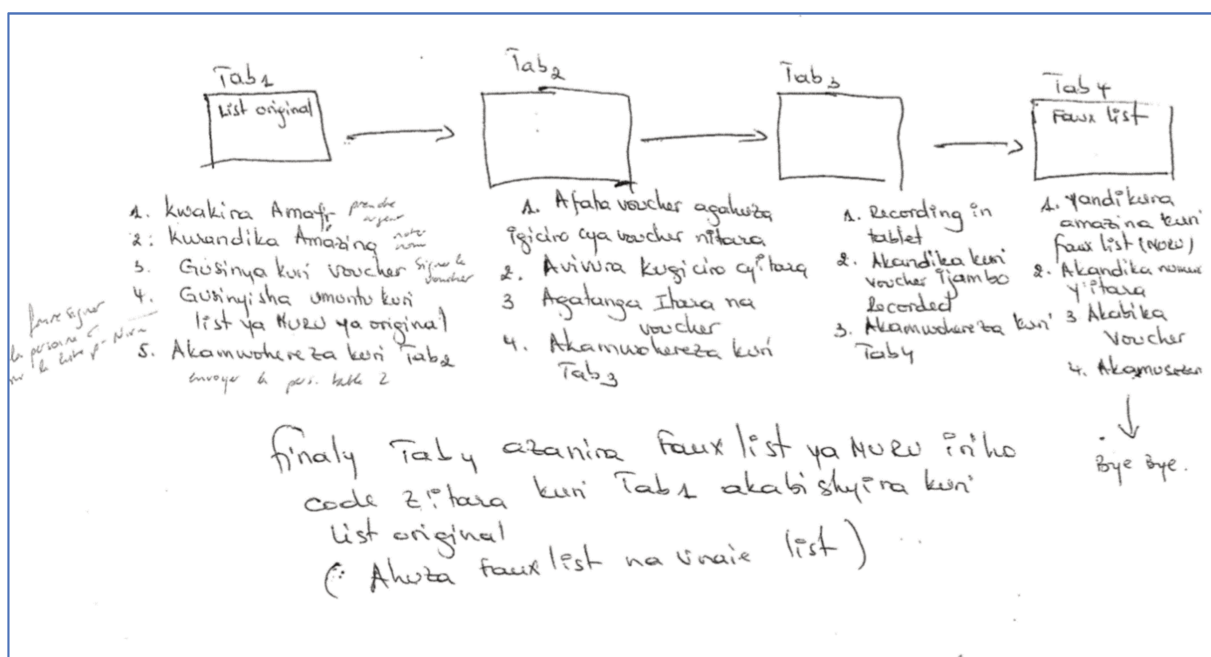 Tab1
List original
1. Kwakira Amafr prendre argent
2: Kwandika Amazina noter nom
3. Gusinya kuri voucher Signer le voucher
4. Gusinyisha umuntu kuri
list ya NURU ya original
faire signer
la personne
sur la liste
5. Akamwohereza kuri Tab2
envoyer la pers. table 2
Tab2
1. Afata voucher agahuza
igiciro cya voucher nitara
2. Avivura kugiciro cyitara
3 Agatanga Itara na
voucher
4. Akamwohereza kuri
Tab3
Tab3
1. Recording in
tablet
2. Akandika kuri
voucher ijambo
Recorded
3. Akamwohereza kuri
Tab4
Tab4
Faux list
1. yandikura
amazina kuri
faux list (NURU)
2. Akandika
y'itara
3 Akabika
Voucher
4.
Bye Bye.
finaly Tab4 azanira Faux list ya NURU iriho
code z'itara kuri Tab1 akabishyira kuri
List original
( Ahuza faux list na vraie list )